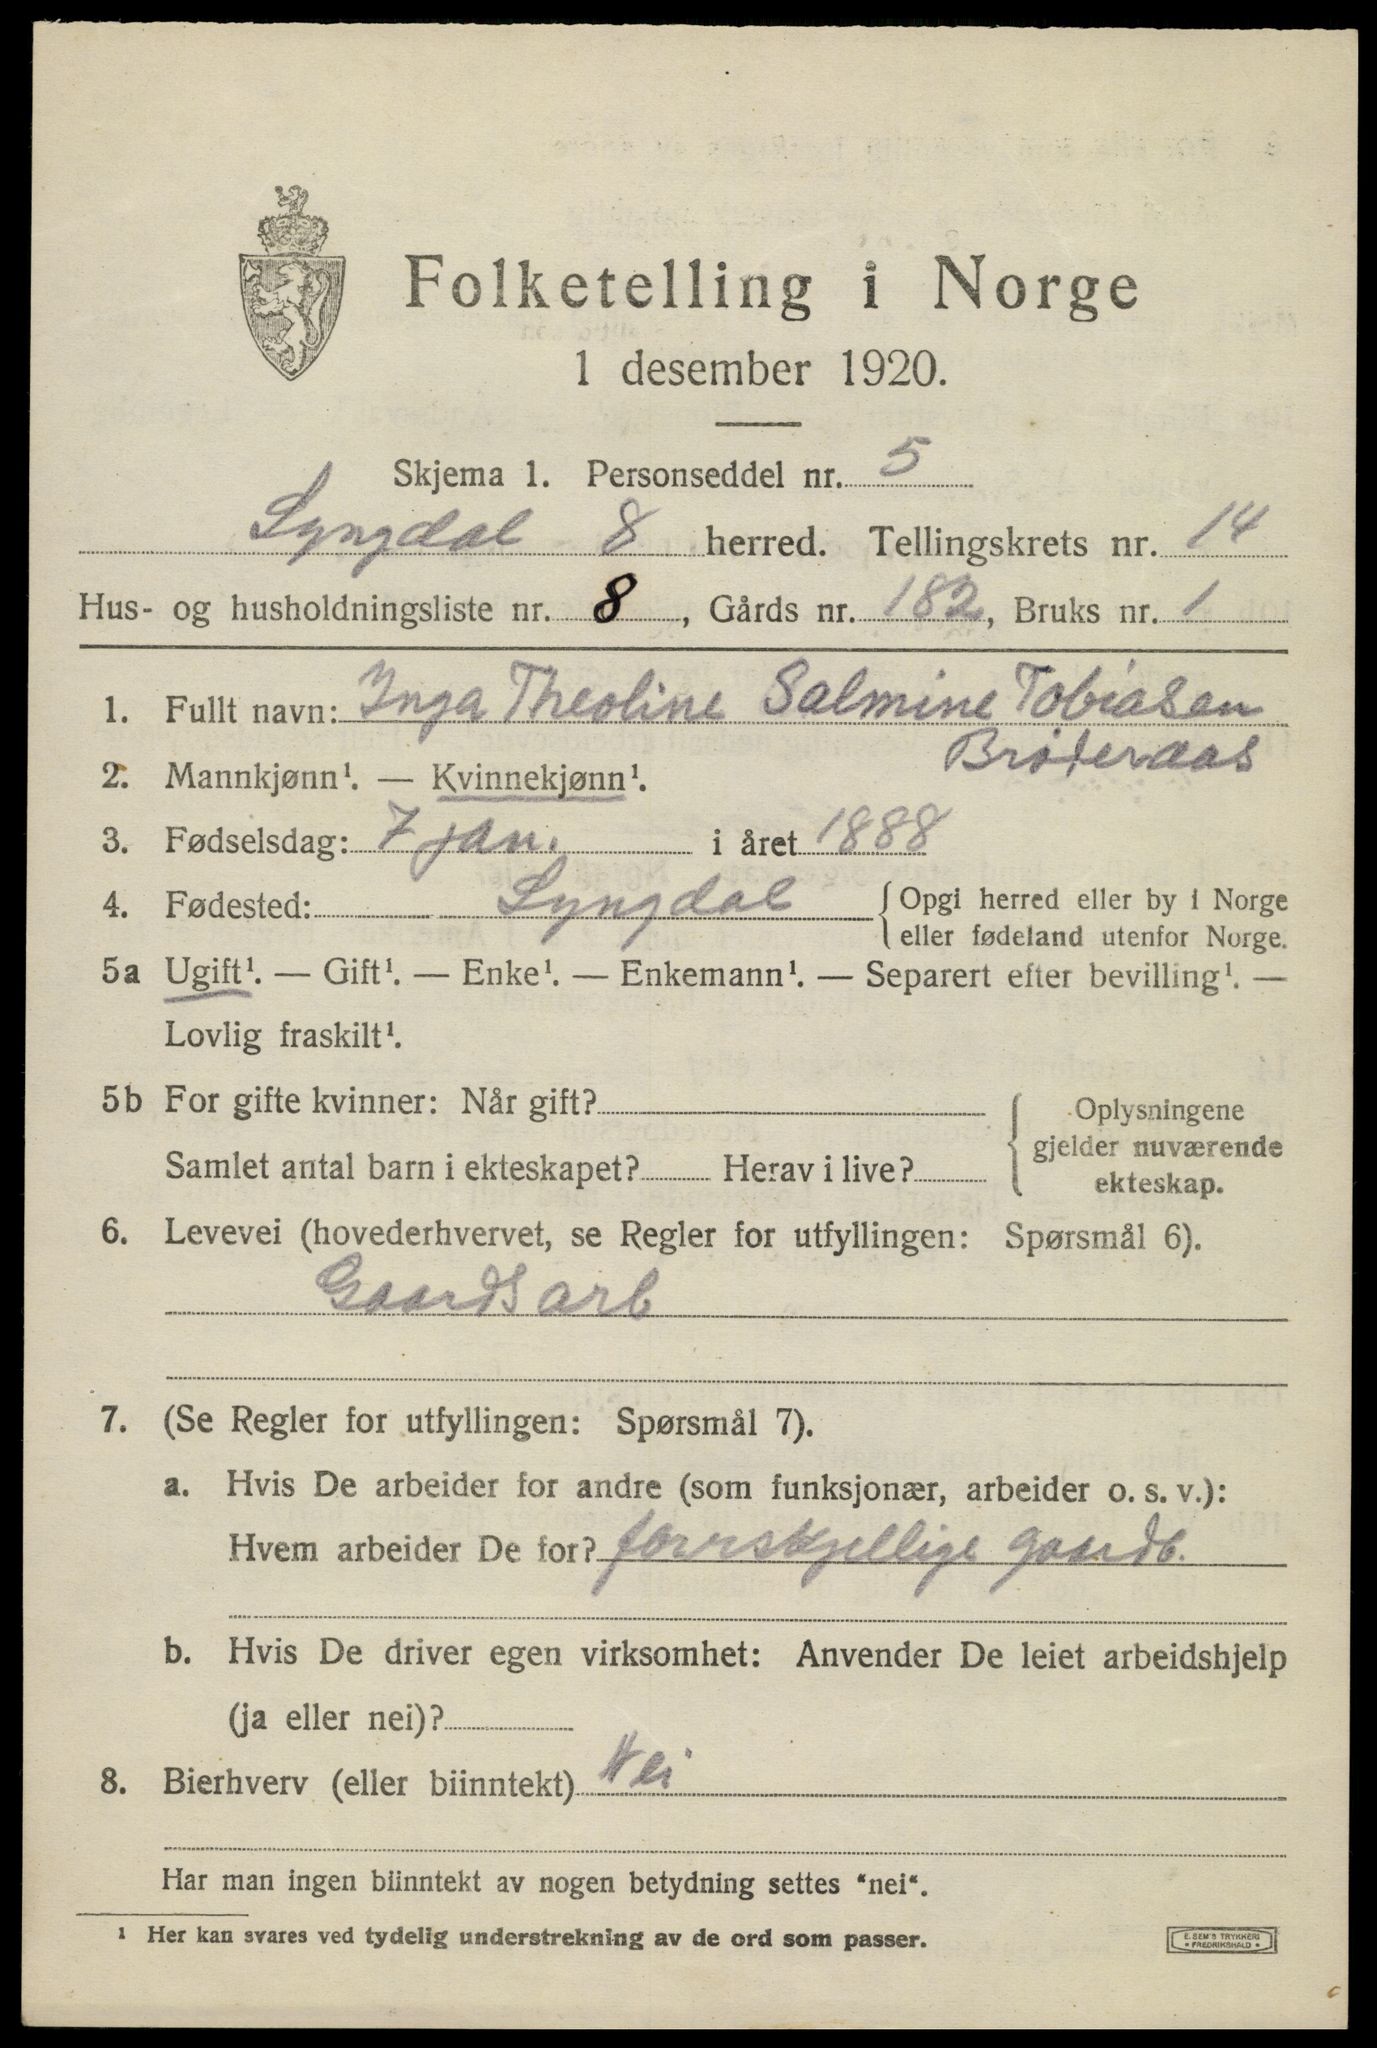 Folketelling i Norge
1 desember 1920.
Skjema 1. Personseddel nr. 5
Lyngdal 8 herred. Tellingskrets nr. 14
Hus- og husholdningsliste nr. 8, Gårds nr. 182, Bruks nr. 1
1. Fullt navn: Inga Theoline Salmine Tobiasen
Brøderaas
2. Mannkjønn¹. — Kvinnekjønn¹.
3. Fødselsdag: 7 jan. i året 1888
4. Fødested: Lyngdal { Opgi herred eller by i Norge
eller fødeland utenfor Norge.
5a Ugift¹. — Gift¹. — Enke¹. — Enkemann¹. — Separert efter bevilling¹. —
Lovlig fraskilt¹.
5b For gifte kvinner: Når gift?
Samlet antal barn i ekteskapet? Herav i live?
Oplysningene
gjelder nuværende
ekteskap.
6. Levevei (hovederhvervet, se Regler for utfyllingen: Spørsmål 6).
Gaards arb
7. (Se Regler for utfyllingen: Spørsmål 7).
a. Hvis De arbeider for andre (som funksjonær, arbeider o. s. v.):
Hvem arbeider De for? forrskjellige gaardb.
b. Hvis De driver egen virksomhet: Anvender De leiet arbeidshjelp
(ja eller nei)?
8. Bierhverv (eller biinntekt) Nei
Har man ingen biinntekt av nogen betydning settes "nei".
¹ Her kan svares ved tydelig understrekning av de ord som passer.
E. SEM'S TRYKKERI
• FREDRIKSHALD •